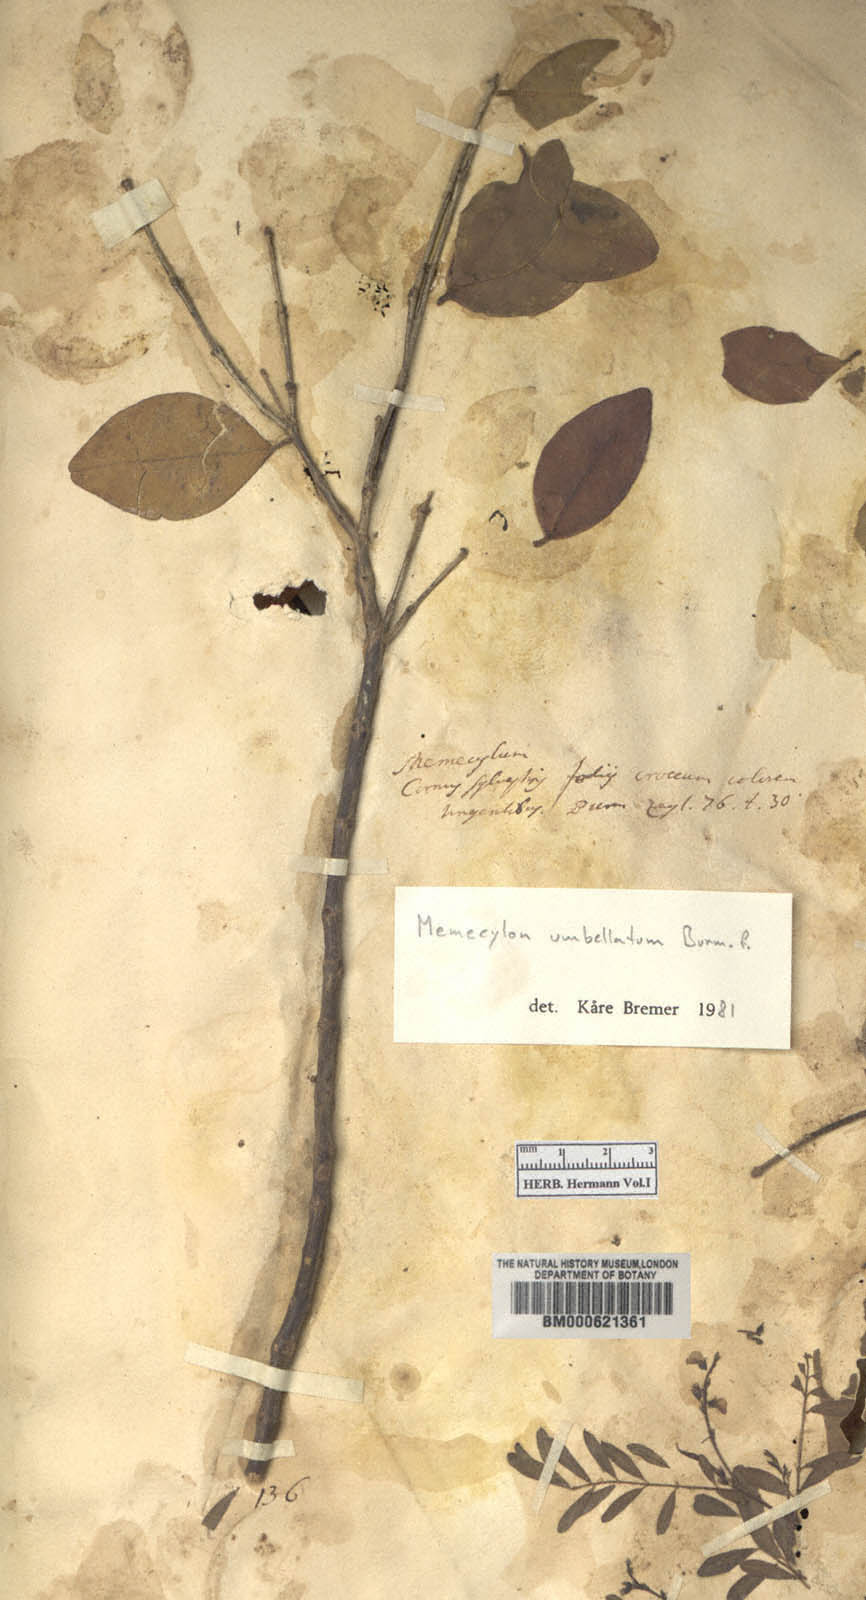 Memecylum
Cornus sylvestris foliis croceum colorem
tingentibus. Burm zeyl. 76. t. 30
Memecylon umbellatum Burm. f.
det. Kåre Bremer 1981
mm 1 2 3
HERB. Hermann Vol.I
THE NATURAL HISTORY MUSEUM,LONDON
DEPARTMENT OF BOTANY
BM000621361
136